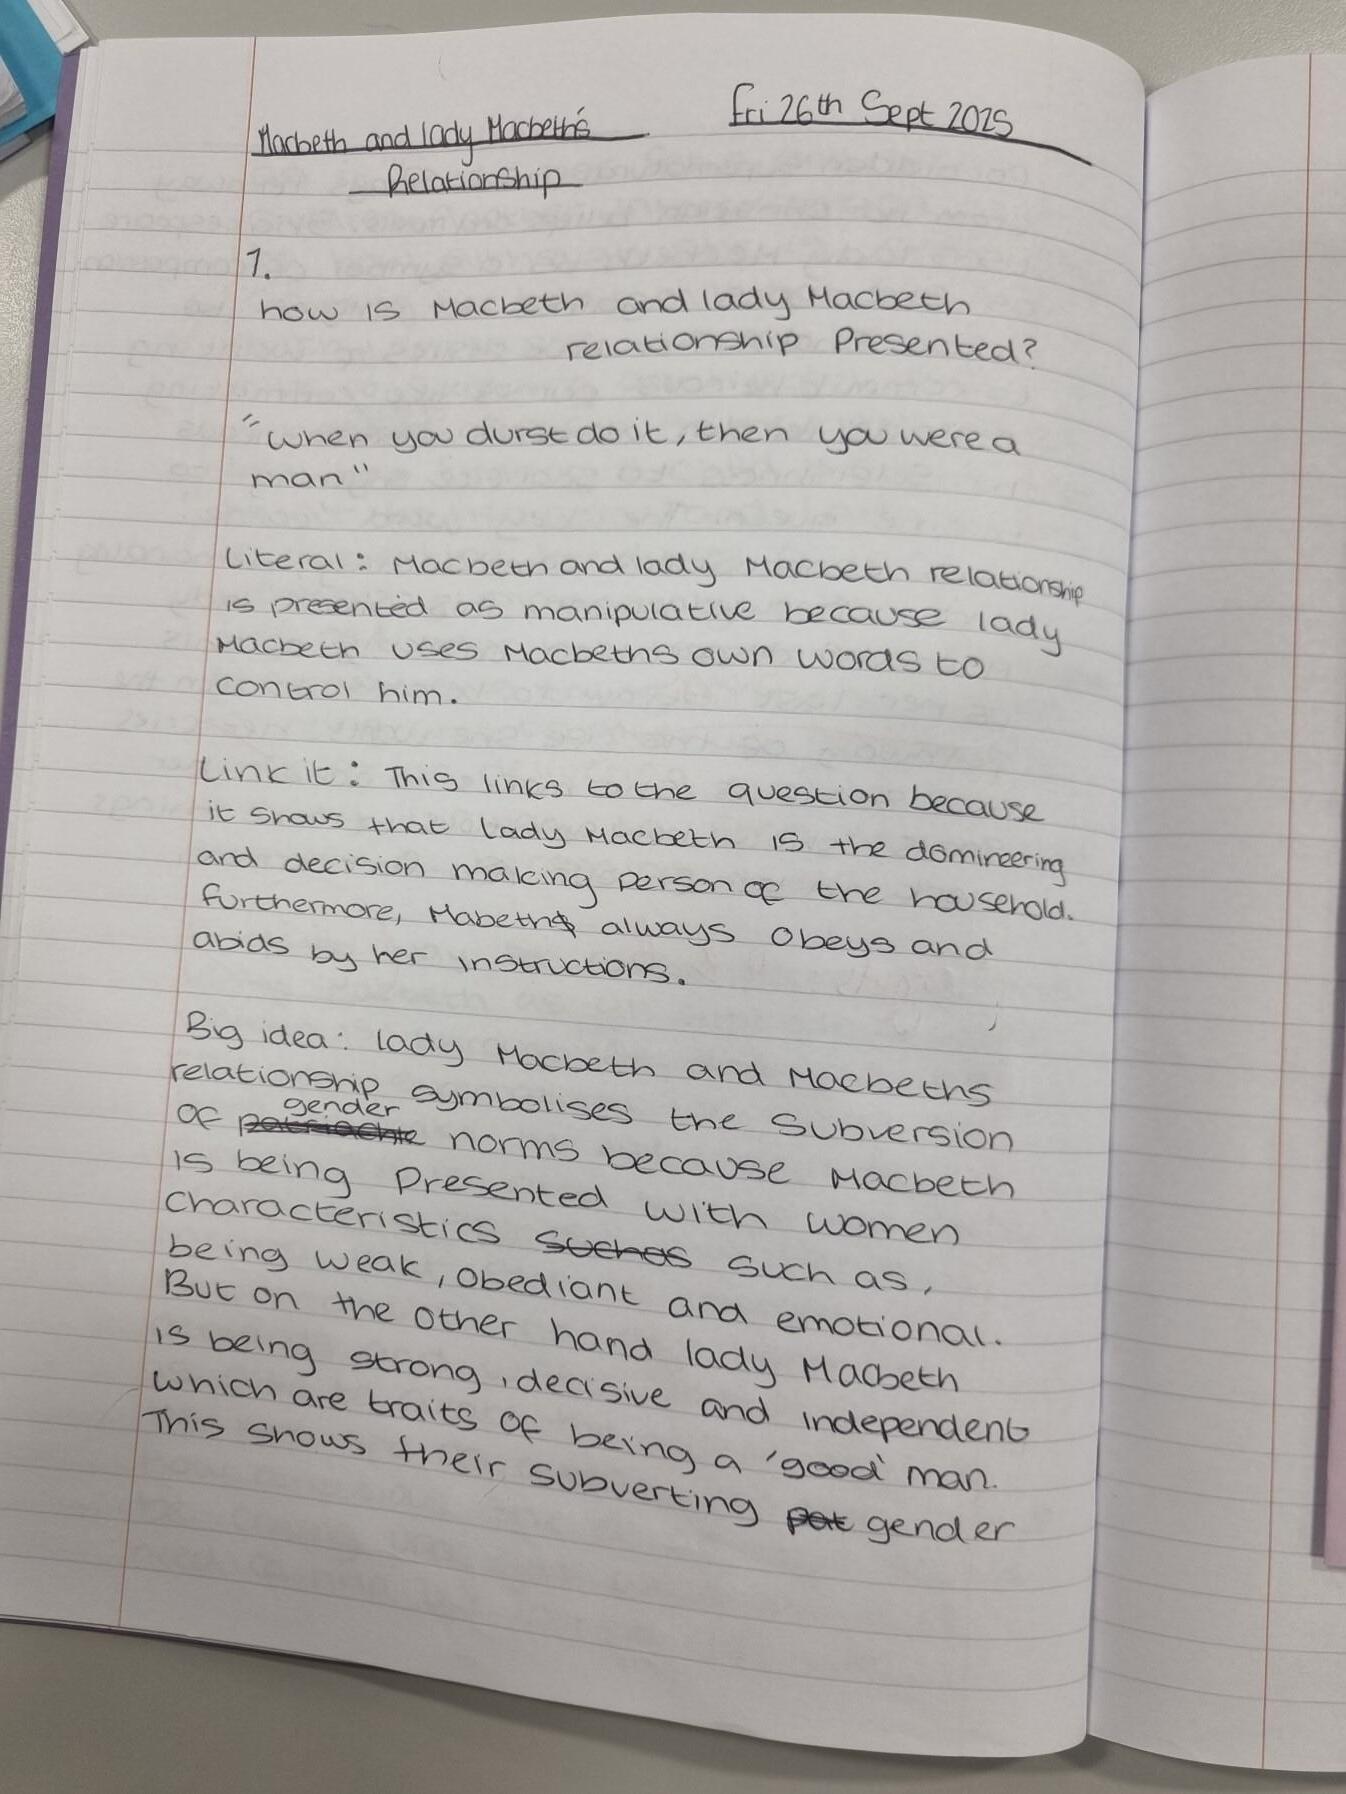 Macbeth and lady Macbeth's
Fri 26th Sept 2025
Relationship
1.
how is Macbeth and lady Macbeth
relationship Presented?
"when you durst do it, then you were a
man"
Literal: Macbeth and lady Macbeth relationship
is presented as manipulative because lady
Macbeth uses Macbeths own words to
control him.
Link it: This links to the question because
it shows that lady Macbeth is the domineering
and decision making person of the household.
furthermore, Mabeth always obeys and
abids by her instructions.
Big idea: lady Macbeth and Macbeths
relationship symbolises the subversion
of patriachie gender norms because Macbeth
is being Presented with women
characteristics suchas such as,
being weak, obediant and emotional.
But on the other hand lady Macbeth
is being strong, decisive and independent
which are traits of being a 'good' man.
This shows their subverting pat gender